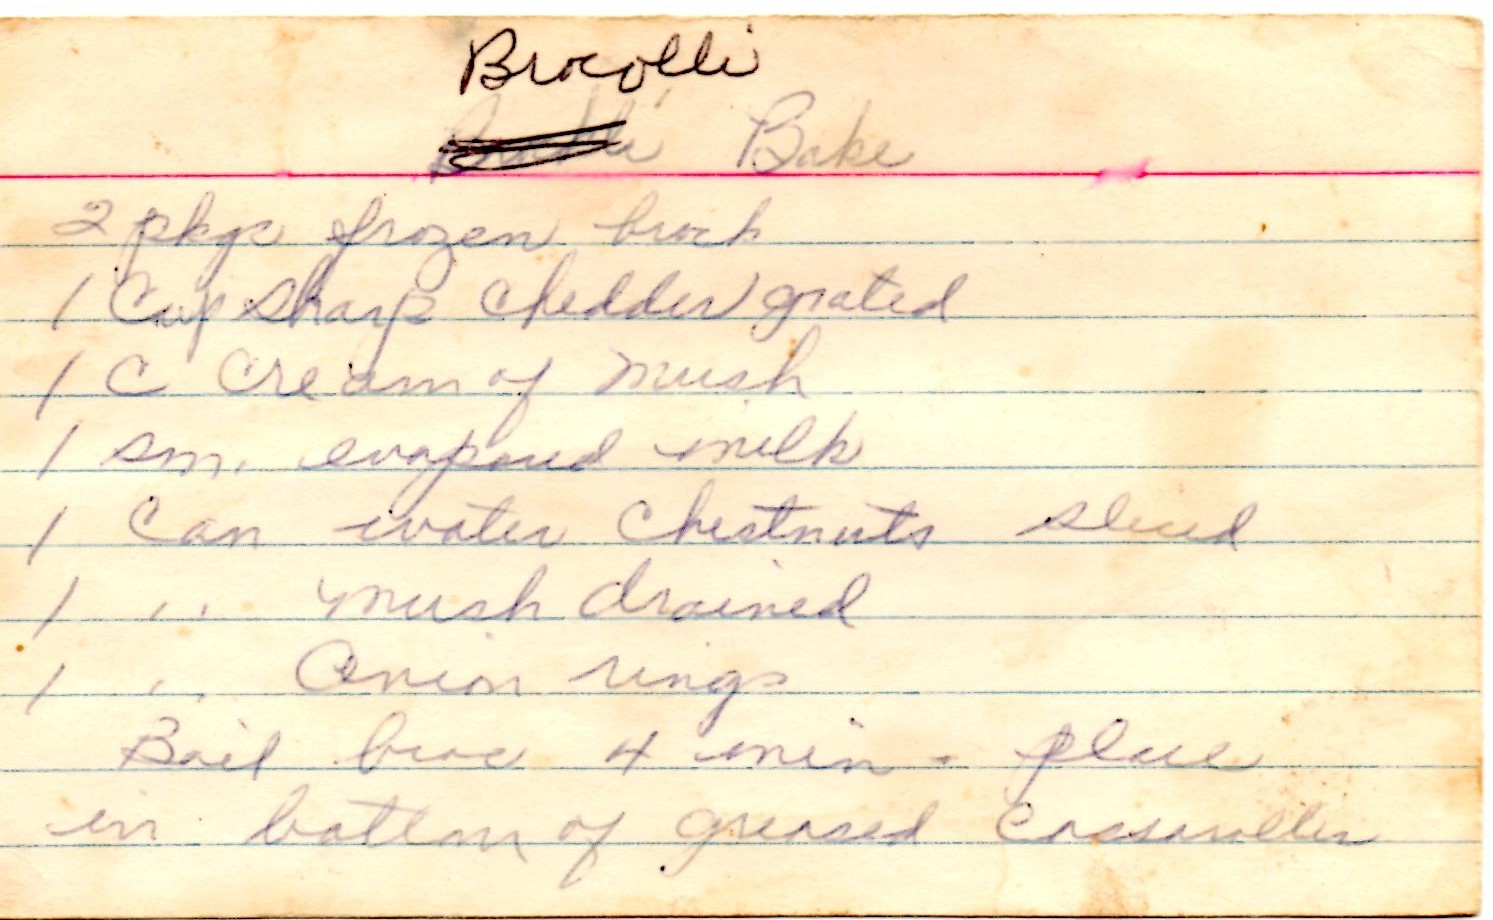 Brocolli
Bake
2 pkgs frozen brock
1 Cup Sharp Chedder grated
1 C Cream of Mush
1 sm. evapored milk
1 Can water Chestnuts sliced
1 " mush drained
1 " Onion rings
Boil broc 4 min - place
in bottom of greased